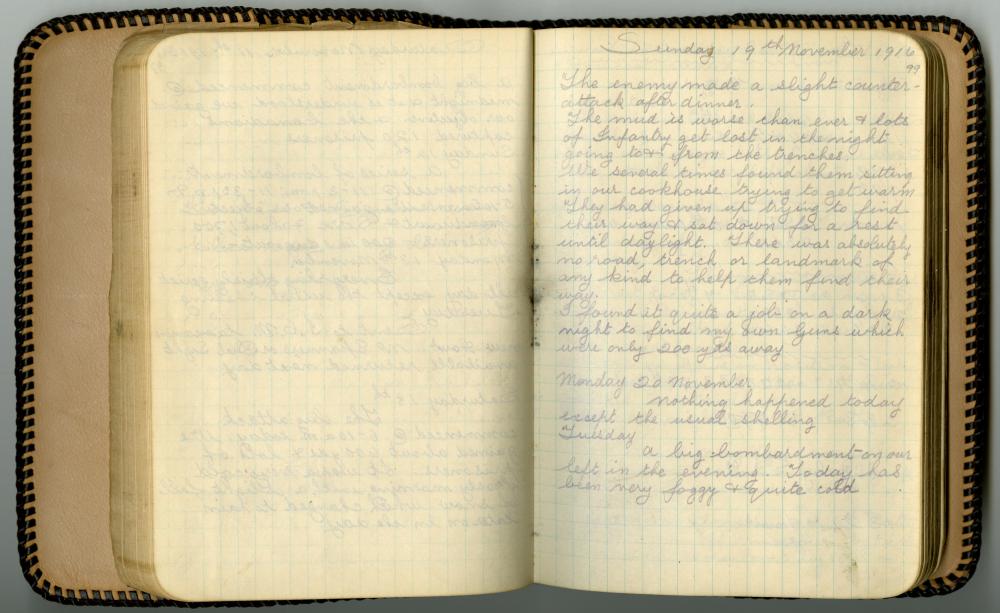 Sunday 19th November 1916
99
The enemy made a slight counter-
attack after dinner.
The mud is worse than ever & lots
of Infantry get lost in the night
going to & from the trenches.
We several times found them sitting
in our cookhouse trying to get warm
They had given up trying to find
their way & sat down for a rest
until daylight. There was absolutely
no road, trench or landmark of
any kind to help them find their
way.
I found it quite a job on a dark
night to find my own Guns which
were only 200 yds away
Monday 20 November
nothing happened today
except the usual shelling
Tuesday
a big bombardment on our
left in the evening. Today has
been very foggy & quite cold